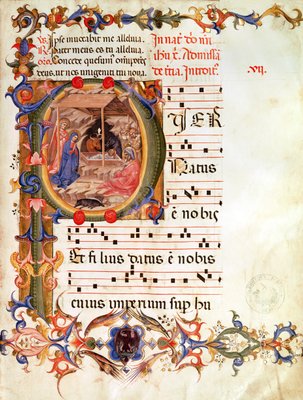 Ipse invocabit me alleluia.
Pater meus es tu alleluia.
Concede quesumus omnipotens
deus, ut nos unigeniti tui nova.
In nat. dni
Ad missa
.VI.
PUER
natus
ē nobis
Et filius datus ē nobis
cuius imperium sup hu